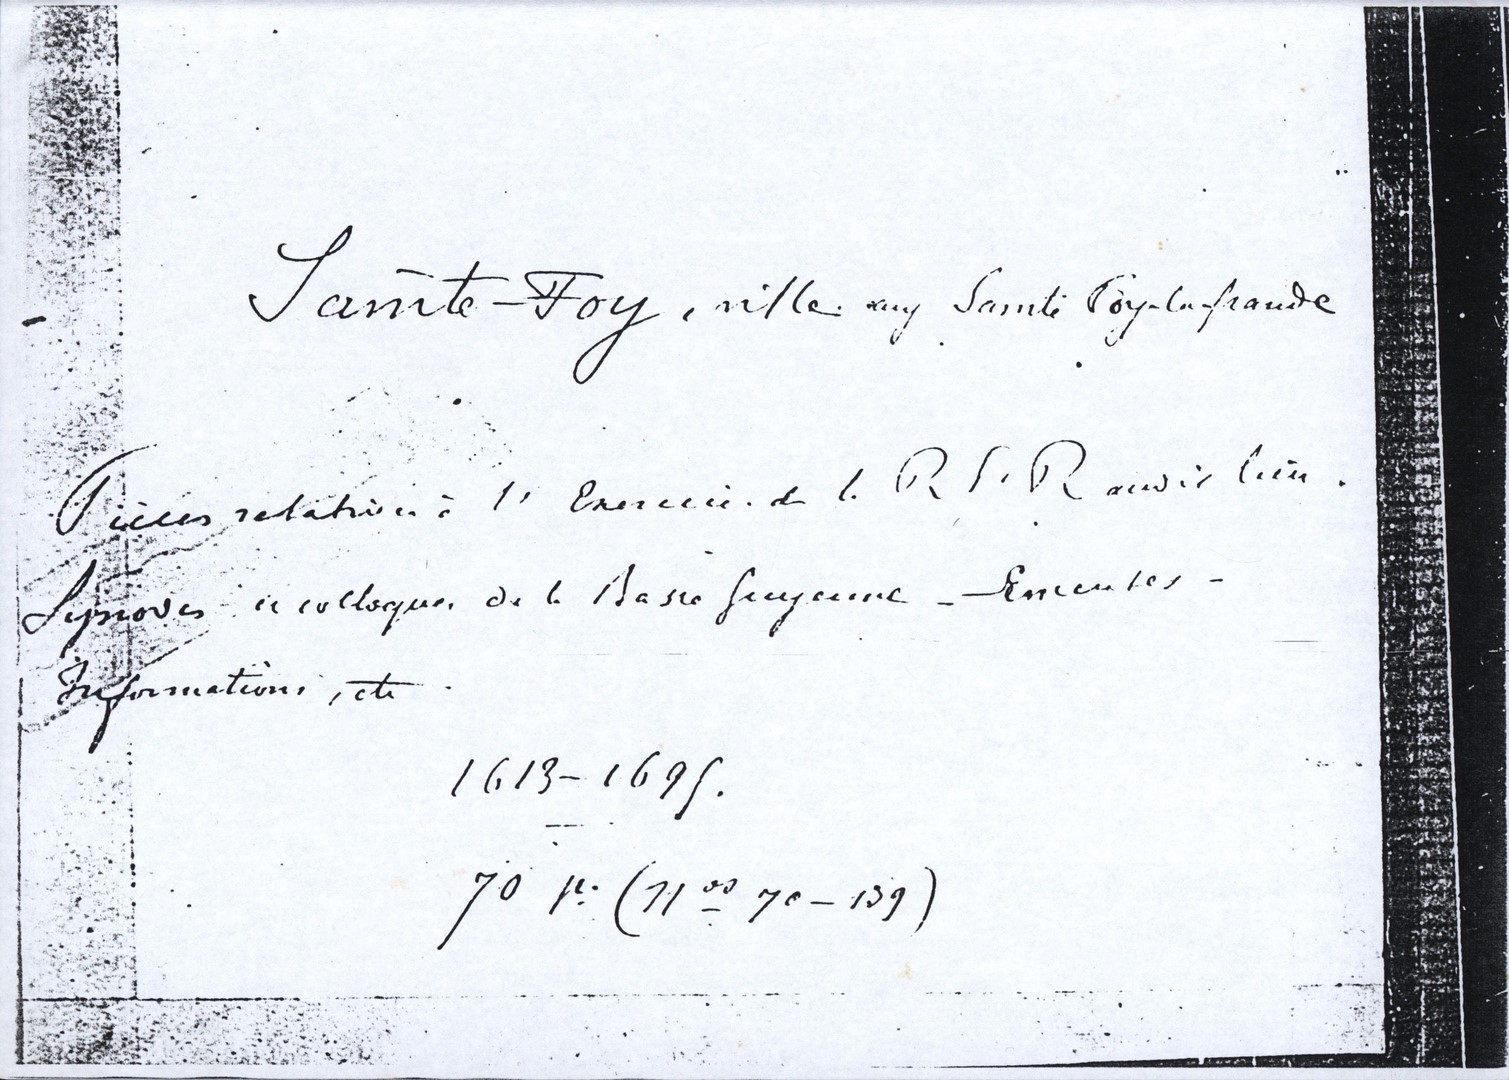 Sainte-Foy, ville auj Sainte Foy-la-grande
Pièces relatives à l'Exercice de la R P R audit lieu.
Synodes et colloques de la Basse guyenne - Emeutes -
Informations, etc
1613-1695.
70 p. (nos 70-139)